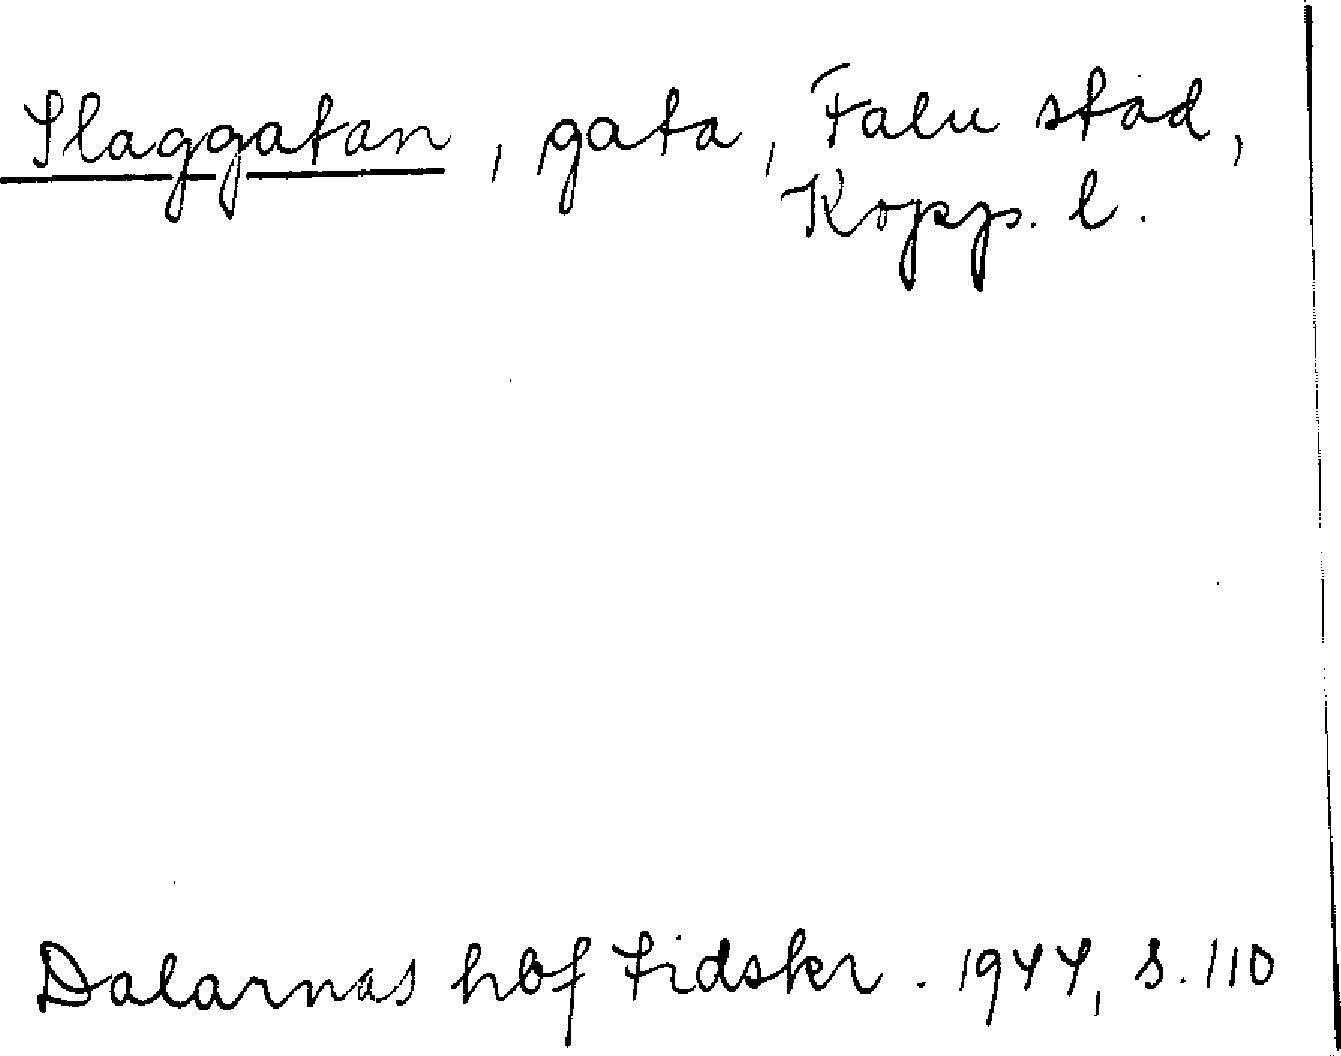 Slaggatan, gata, Falu stad,
Kopp. l.
Dalarnas hbf tidskr. 1944, s. 110